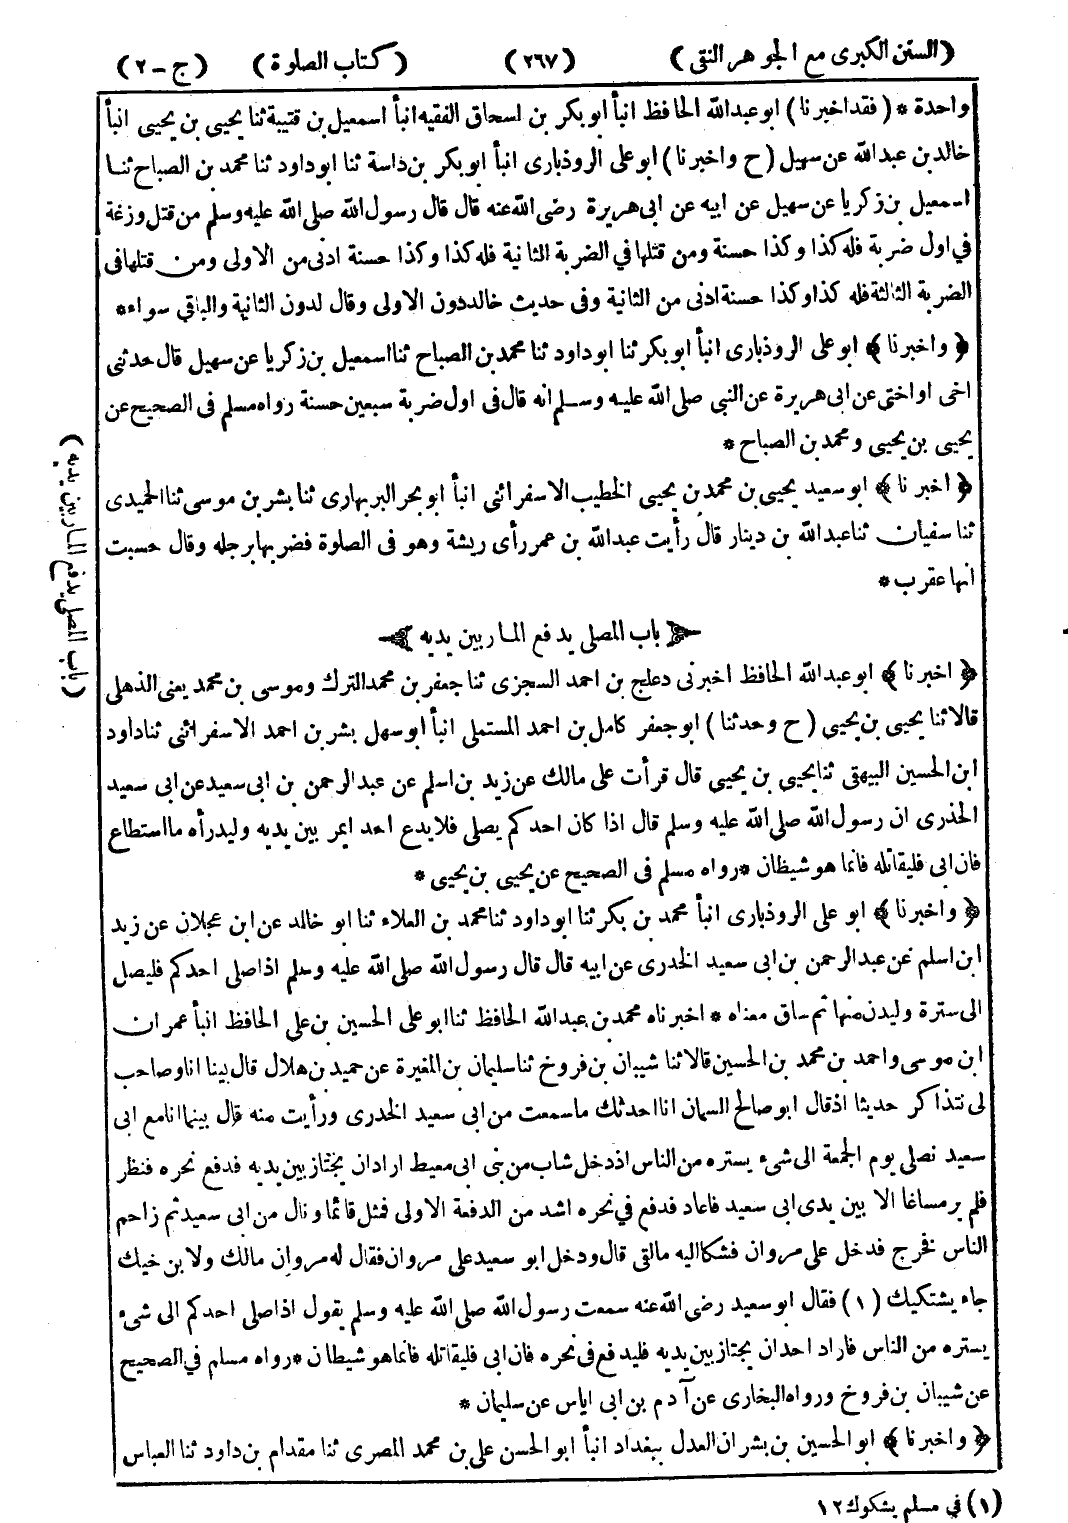 (السنن الكبرى مع الجوهر النقى) (٢٦٧) (كتاب الصلوة) (ج - ٢)
واحدة * (فقد اخبرنا) ابو عبدالله الحافظ انبأ ابو بكر بن اسحاق الفقيه انبأ اسمعيل بن قتيبة ثنا يحيى بن يحيى انبأ
خالد بن عبدالله عن سهيل (ح واخبرنا) ابو على الروذبارى انبأ ابو بكر بن داسة ثنا ابو داود ثنا محمد بن الصباح ثنا
اسمعيل بن زكريا عن سهيل عن ابيه عن ابى هريرة رضى الله عنه قال قال رسول الله صلى الله عليه وسلم من قتل وزغة
في اول ضربة فله كذا وكذا حسنة ومن قتلها في الضربة الثانية فله كذا وكذا حسنة ادنى من الاولى ومن قتلها فى
الضربة الثالثة فله كذا وكذا حسنة ادنى من الثانية وفى حديث خالد دون الاولى وقال لدون الثانية والباقي سواء *
﴿واخبرنا﴾ ابو على الروذبارى انبأ ابو بكر ثنا ابو داود ثنا محمد بن الصباح ثنا اسمعيل بن زكريا عن سهيل قال حدثنى
اخى او اختى عن ابى هريرة عن النبى صلى الله عليه وسلم انه قال فى اول ضربة سبعين حسنة رواه مسلم فى الصحيح عن
يحيى بن يحيى ومحمد بن الصباح *
﴿اخبرنا﴾ ابو سعيد يحيى بن محمد بن يحيى الخطيب الاسفرائنى انبأ ابو بحر البربهارى ثنا بشر بن موسى ثنا الحميدى
ثنا سفيان ثنا عبدالله بن دينار قال رأيت عبدالله بن عمر رأى ريشة وهو فى الصلوة فضربها برجله وقال حسبت
انها عقرب *
﴿باب المصلى يدفع المار بين يديه﴾
(باب المصلى يدفع المار بين يديه)
﴿اخبرنا﴾ ابو عبدالله الحافظ اخبرنى دعلج بن احمد السجزى ثنا جعفر بن محمد الترك وموسى بن محمد يعنى الذهلى
قالا ثنا يحيى بن يحيى (ح وحدثنا) ابو جعفر كامل بن احمد المستملى انبأ ابو سهل بشر بن احمد الاسفرائنى ثنا داود
ابن الحسين البيهقى ثنا يحيى بن يحيى قال قرأت على مالك عن زيد بن اسلم عن عبد الرحمن بن ابى سعيد عن ابى سعيد
الخذرى ان رسول الله صلى الله عليه وسلم قال اذا كان احدكم يصلى فلا يدع احد ايمر بين يديه وليدرأه ما استطاع
فان ابى فليقاتله فانما هو شيطان * رواه مسلم فى الصحيح عن يحيى بن يحيى *
﴿واخبرنا﴾ ابو على الروذبارى انبأ محمد بن بكر ثنا ابو داود ثنا محمد بن العلاء ثنا ابو خالد عن ابن عجلان عن زيد
ابن اسلم عن عبد الرحمن بن ابى سعيد الخدرى عن ابيه قال قال رسول الله صلى الله عليه وسلم اذا صلى احدكم فليصل
الى سترة وليدن منها ثم ساق معناه * اخبرناه محمد بن عبدالله الحافظ ثنا ابو على الحسين بن على الحافظ انبأ عمران
ابن موسى واحمد بن محمد بن الحسين قالا ثنا شيبان بن فروخ ثنا سليمان بن المغيرة عن حميد بن هلال قال بينا انا وصاحب
لى نتذاكر حديثا اذ قال ابو صالح السمان انا احدثك ما سمعت من ابى سعيد الخدرى ورأيت منه قال بينما انا مع ابى
سعيد نصلى يوم الجمعة الى شىء يستره من الناس اذ دخل شاب من بنى ابى معيط اراد ان يجتاز بين يديه فدفع نحره فنظر
فلم ير مساغا الا بين يدى ابى سعيد فاعاد فدفع في نحره اشد من الدفعة الاولى فمثل قائما ونال من ابى سعيد ثم زاحم
الناس فخرج فدخل على مروان فشكا اليه ما لقى قال ودخل ابو سعيد على مروان فقال له مروان مالك ولابن خيك
جاء يشتكيك (١) فقال ابو سعيد رضى الله عنه سمعت رسول الله صلى الله عليه وسلم يقول اذا صلى احدكم الى شىء
يستره من الناس فاراد احد ان يجتاز بين يديه فليدفع فى نحره فان ابى فليقاتله فانما هو شيطان * رواه مسلم في الصحيح
عن شيبان بن فروخ ورواه البخارى عن آدم بن ابى اياس عن سليمان *
﴿واخبرنا﴾ ابو الحسين بن بشران العدل ببغداد انبأ ابو الحسن على بن محمد المصرى ثنا مقدام بن داود ثنا العباس
(١) في مسلم يشكوك ١٢